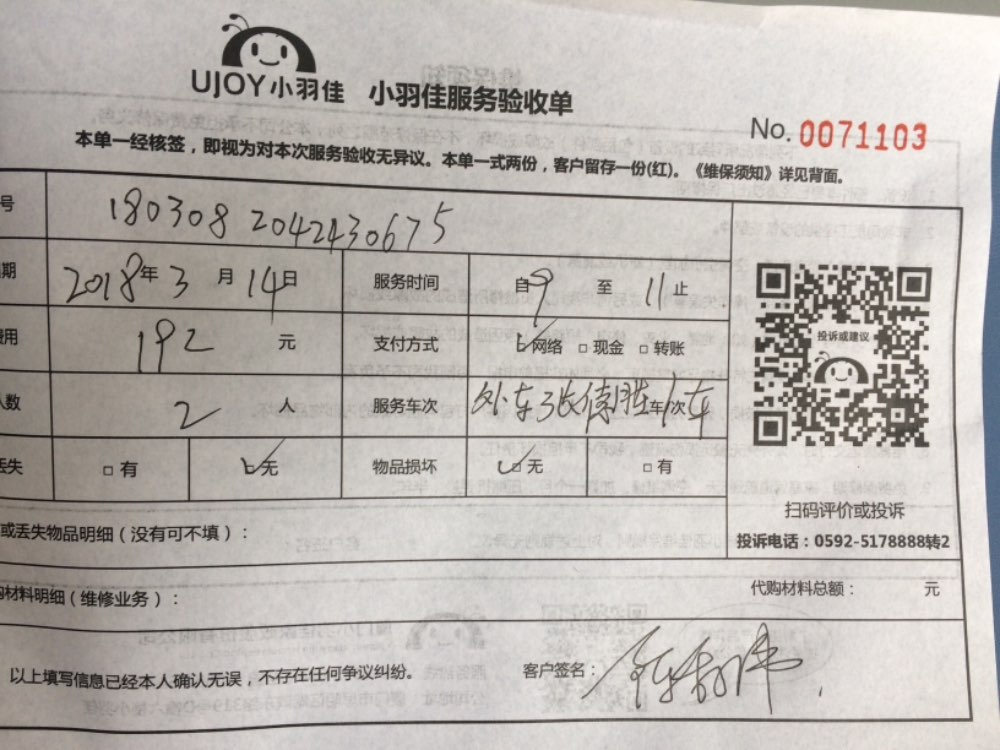 UJOY小羽佳 小羽佳服务验收单
No. 0071103
本单一经核签，即视为对本次服务验收无异议。本单一式两份，客户留存一份(红)。《维保须知》详见背面。
号 180308 2042430675
期 2018年3月14日 服务时间 自9至11止
费用 192 元 支付方式 网络 □现金 □转账
人数 2 人 服务车次 外车张德胜车1次车
丢失 □有 无 物品损坏 □无 □有
投诉或建议
扫码评价或投诉
投诉电话：0592-5178888转2
或丢失物品明细（没有可不填）：
购材料明细（维修业务）： 代购材料总额： 元
以上填写信息已经本人确认无误，不存在任何争议纠纷。 客户签名：